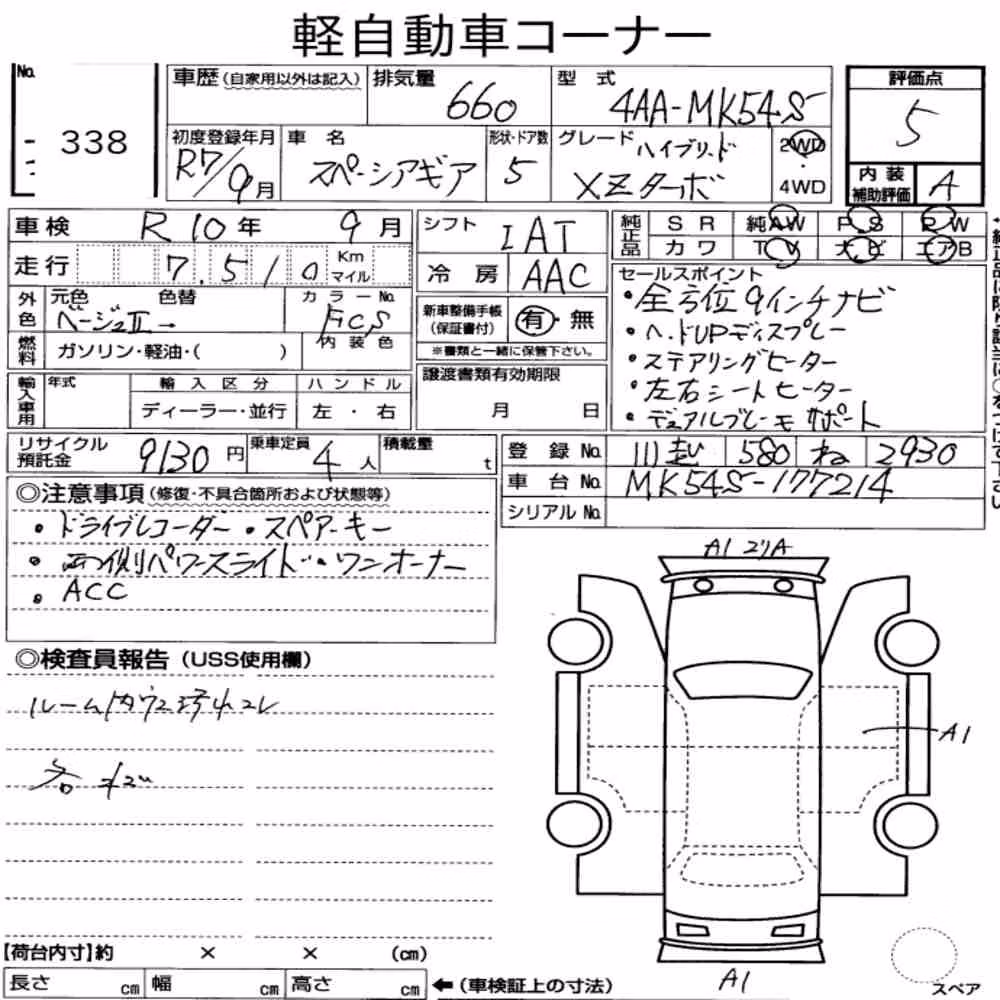 軽自動車コーナー
No. 338
車歴 (自家用以外は記入)
排気量 660
型式 4AA-MK54S
評価点 5
初度登録年月 R7/9月
車名 スペーシアギア
形状・ドア数 5
グレード ハイブリッド XZターボ
2WD・4WD
内装補助評価 A
車検 R10年 9月
シフト IAT
純正品 SR 純AW P.S P.W
カワ TV ナビ エアB
走行 7,510 Km マイル
冷房 AAC
セールスポイント
・全方位9インチナビ
・ヘッドUPディスプレー
・ステアリングヒーター
・左右シートヒーター
・デュアルブレーキサポート
外色 元色 ベージュII→ 色替
カラーNo. FCS
新車整備手帳(保証書付) 有・無
※書類と一緒に保管下さい。
燃料 ガソリン・軽油・( )
内装色
譲渡書類有効期限
月 日
輸入車用 年式 輸入区分 ハンドル
ディーラー・並行 左・右
リサイクル預託金 9130円
乗車定員 4人
積載量 t
登録No. 580 ね 2930
車台No. MK54S-177214
シリアルNo.
◎注意事項(修復・不具合箇所および状態等)
・ドライブレコーダー・スペアーキー
・両側パワースライド・ワンオーナー
・ACC
◎検査員報告(USS使用欄)
A1
A1
A1
【荷台内寸】約 × × (cm)
長さ cm 幅 cm 高さ cm ←(車検証上の寸法)
スペア